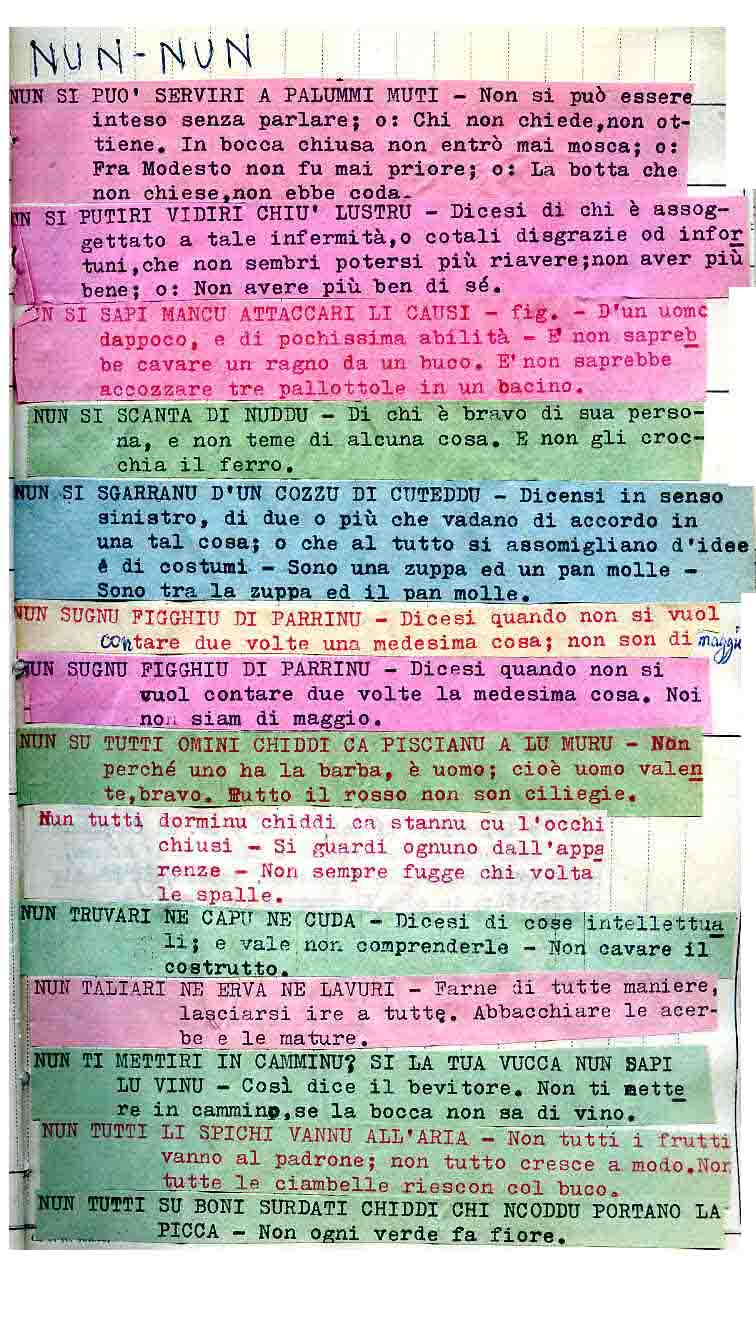 NUN-NUN
NUN SI PUO' SERVIRI A PALUMMI MUTI - Non si può essere
inteso senza parlare; o: Chi non chiede,non ot-
tiene. In bocca chiusa non entrò mai mosca; o:
Fra Modesto non fu mai priore; o: La botta che
non chiese,non ebbe coda.
UN SI PUTIRI VIDIRI CHIU' LUSTRU - Dicesi di chi è assog-
gettato a tale infermità,o cotali disgrazie od infor
tuni,che non sembri potersi più riavere;non aver più
bene; o: Non avere più ben di sé.
UN SI SAPI MANCU ATTACCARI LI CAUSI - fig. - D'un uomo
dappoco, e di pochissima abilità - E' non sapreb
be cavare un ragno da un buco. E'non saprebbe
accozzare tre pallottole in un bacino.
NUN SI SCANTA DI NUDDU - Di chi è bravo di sua perso-
na, e non teme di alcuna cosa. E non gli croc-
chia il ferro.
NUN SI SGARRANU D'UN COZZU DI CUTEDDU - Dicensi in senso
sinistro, di due o più che vadano di accordo in
una tal cosa; o che al tutto si assomigliano d'idee
é di costumi - Sono una zuppa ed un pan molle -
Sono tra la zuppa ed il pan molle.
NUN SUGNU FIGGHIU DI PARRINU - Dicesi quando non si vuol
contare due volte una medesima cosa; non son di maggio
NUN SUGNU FIGGHIU DI PARRINU - Dicesi quando non si
vuol contare due volte la medesima cosa. Noi
non siam di maggio.
NUN SU TUTTI OMINI CHIDDI CA PISCIANU A LU MURU - Non
perché uno ha la barba, è uomo; cioè uomo valen
te,bravo. Tutto il rosso non son ciliegie.
Nun tutti dorminu chiddi ca stannu cu l'occhi
chiusi - Si guardi ognuno dall'appa
renze - Non sempre fugge chi volta
le spalle.
NUN TRUVARI NE CAPU NE CUDA - Dicesi di cose intellettua
li; e vale non comprenderle - Non cavare il
costrutto.
NUN TALIARI NE ERVA NE LAVURI - Farne di tutte maniere,
lasciarsi ire a tutte. Abbacchiare le acer-
be e le mature.
NUN TI METTIRI IN CAMMINU? SI LA TUA VUCCA NUN SAPI
LU VINU - Così dice il bevitore. Non ti mette
re in cammino,se la bocca non sa di vino.
NUN TUTTI LI SPICHI VANNU ALL'ARIA - Non tutti i frutti
vanno al padrone; non tutto cresce a modo.Non
tutte le ciambelle riescon col buco.
NUN TUTTI SU BONI SURDATI CHIDDI CHI NCODDU PORTANO LA
PICCA - Non ogni verde fa fiore.